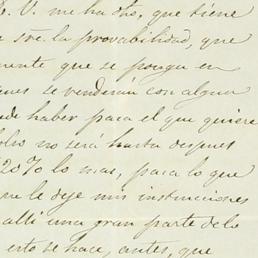 S. V. me ha dho, que tiene
sre. la provabilidad, que
mente que se ponga en
nes se venderán con algun
de haber para el que quiere
será hasta despues
20% lo mas, para lo que
le deje mis instrucciones
alli una gran parte de lo
esto se hace, antes, que